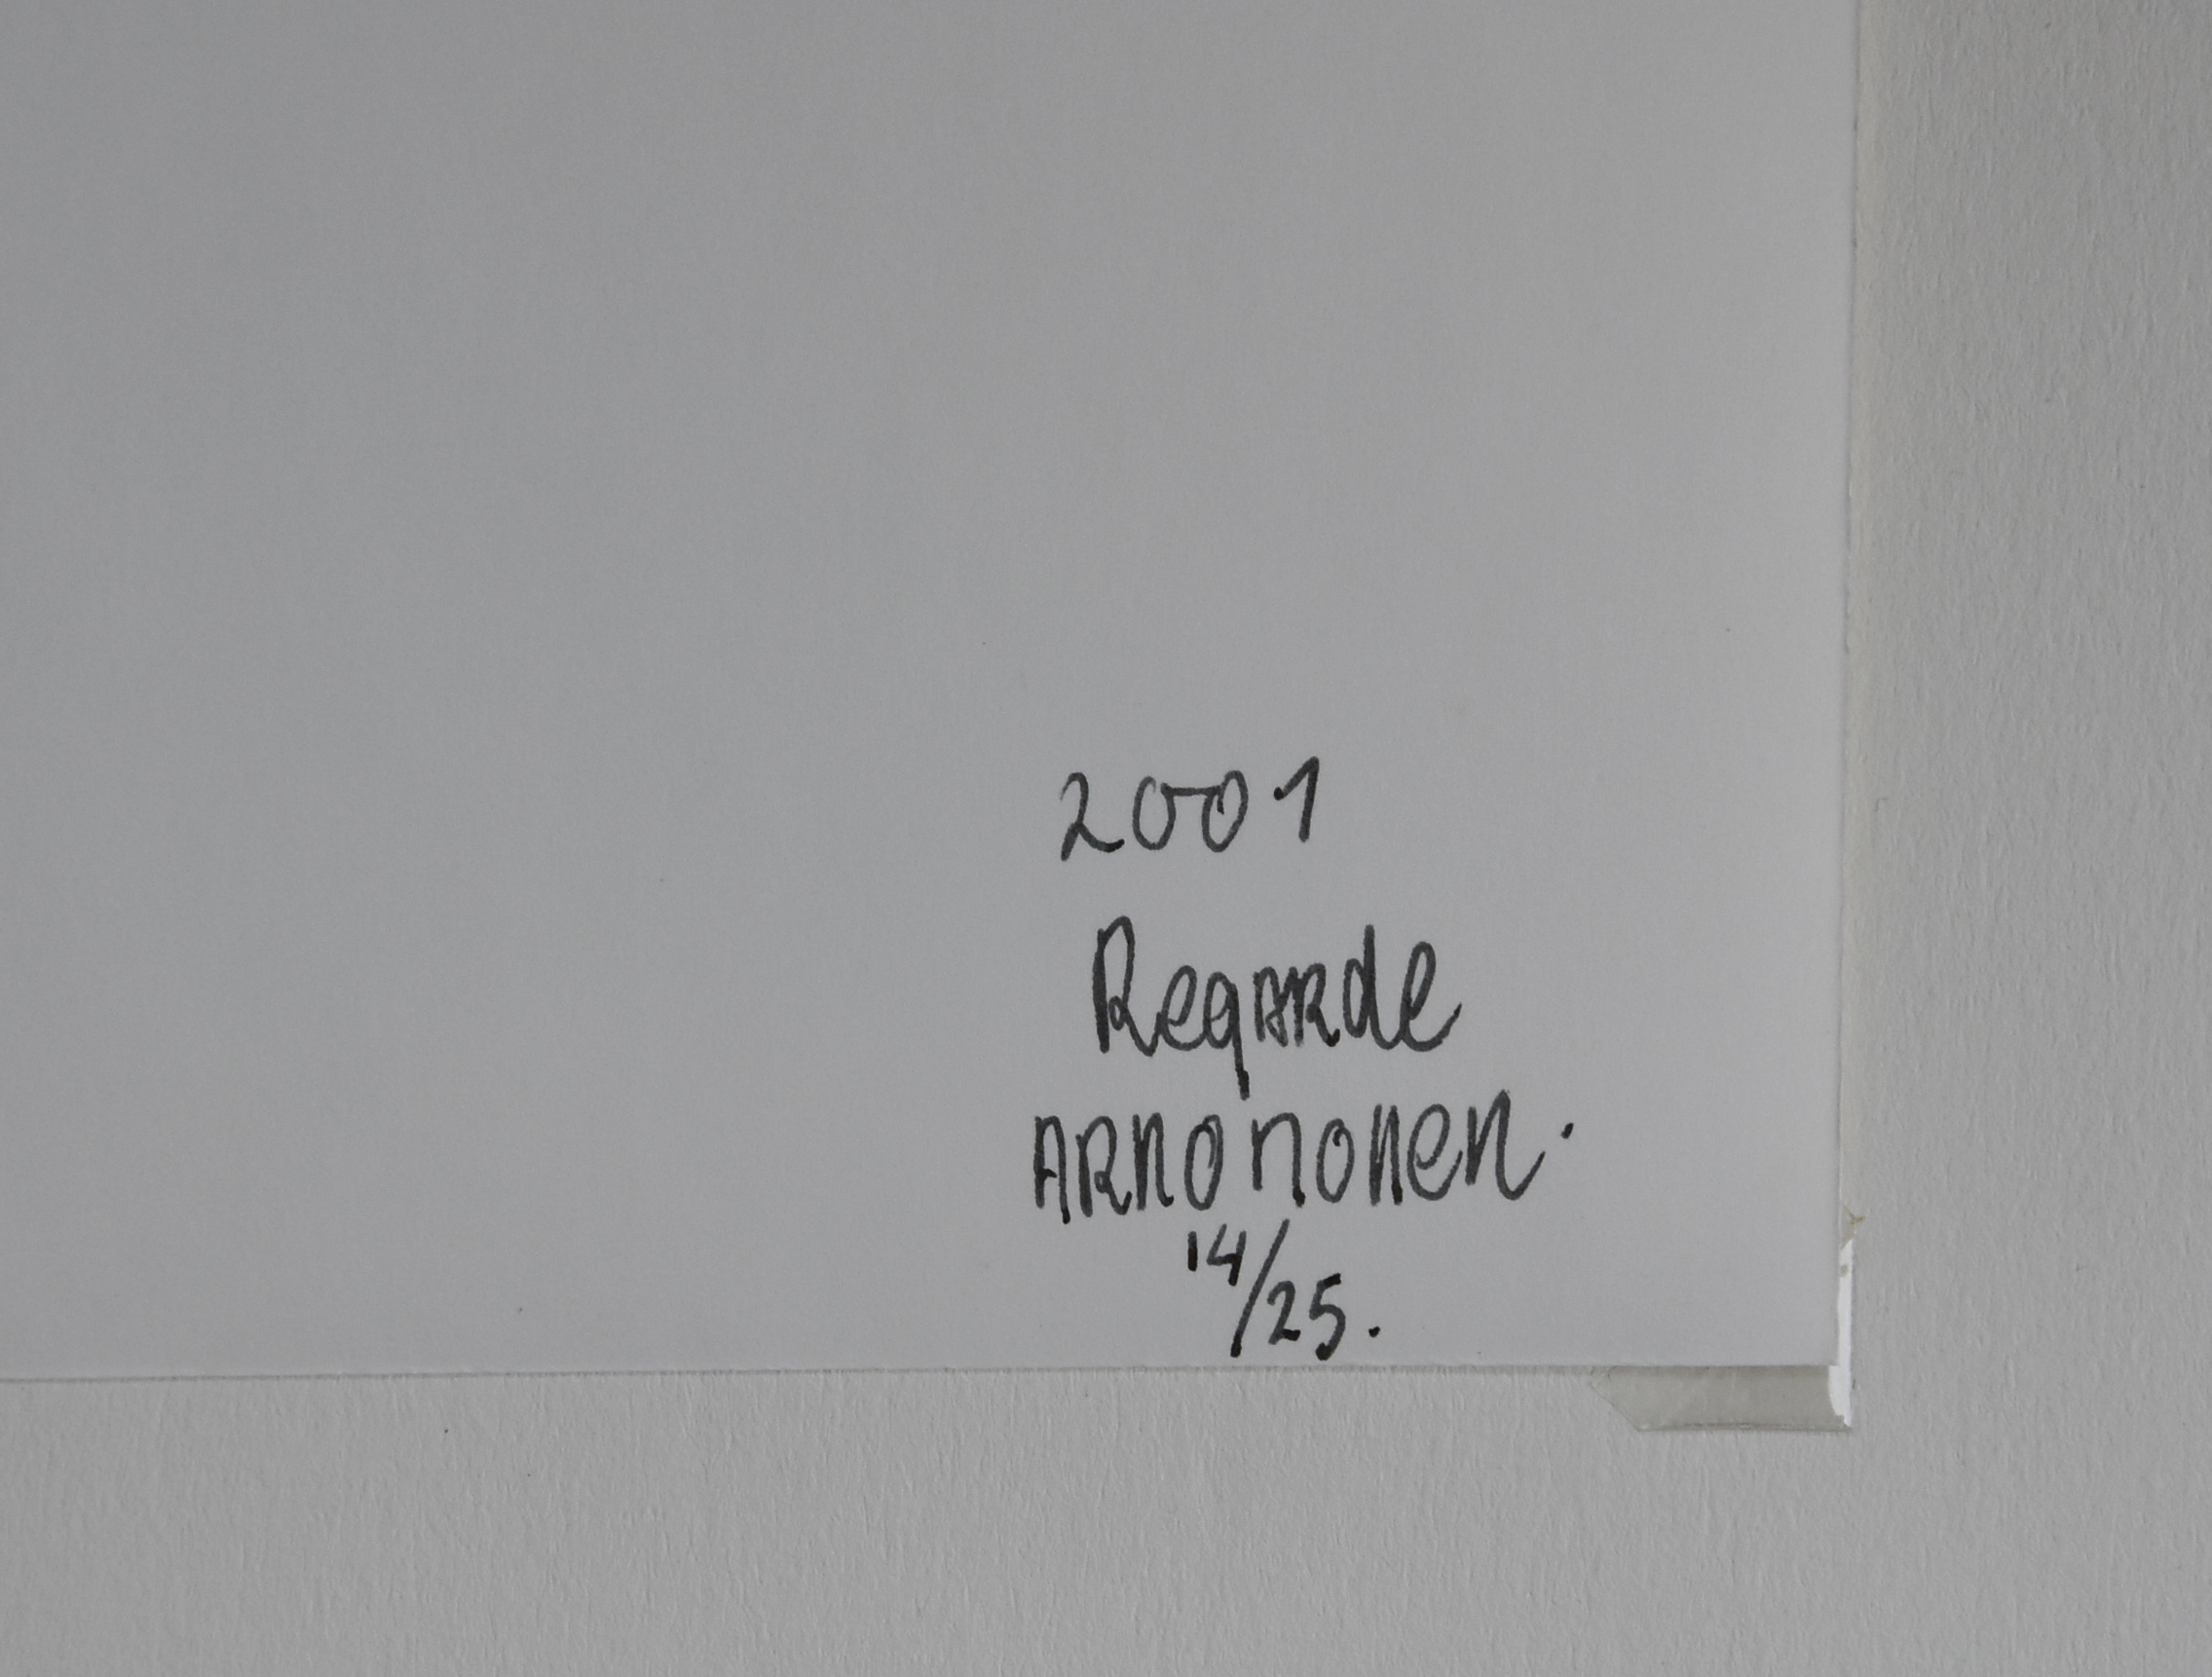 2001
Regarde
ARno nonen.
14/25.